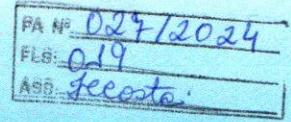 PA Nº 027/2024
FLS: 019
ASS: Jecosta.